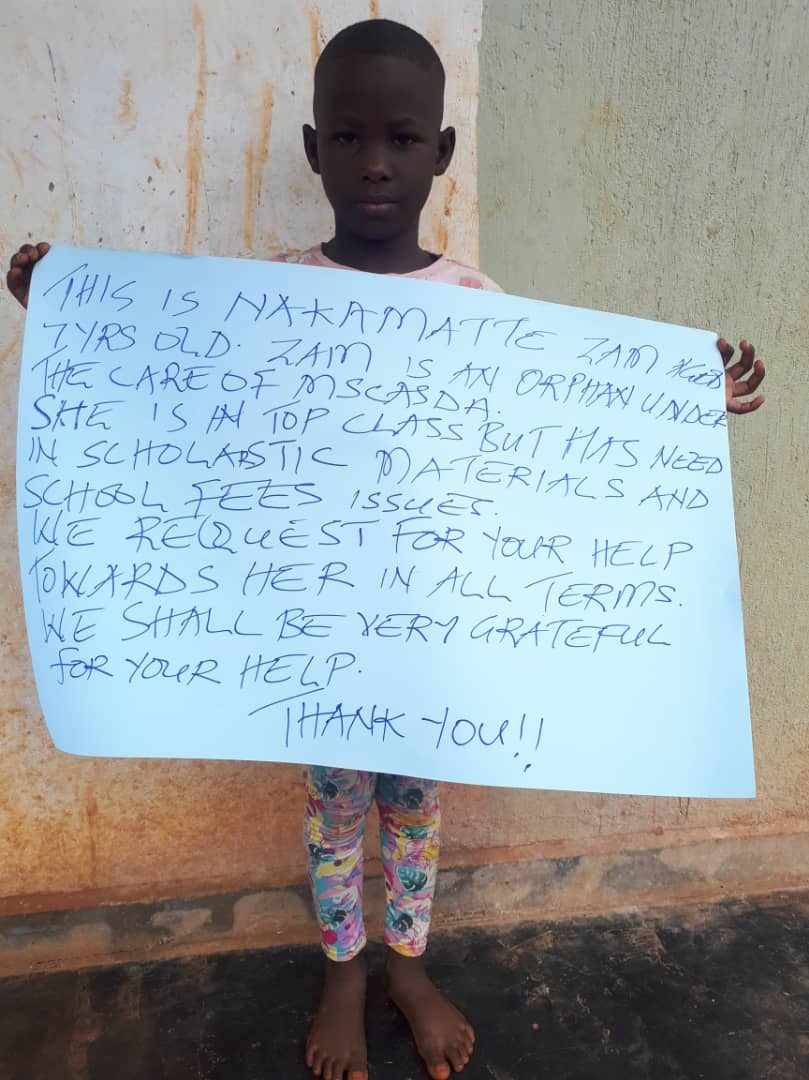 THIS IS NAKAMATTE ZAM AGED
7YRS OLD. ZAM IS AN ORPHAN UNDER
THE CARE OF MSCASDA.
SHE IS IN TOP CLASS BUT HAS NEED
IN SCHOLABSTIC MATERIALS AND
SCHOOL FEES ISSUES.
WE REQUEST FOR YOUR HELP
TOWARDS HER IN ALL TERMS.
WE SHALL BE VERY GRATEFUL
FOR YOUR HELP.
THANK YOU!!